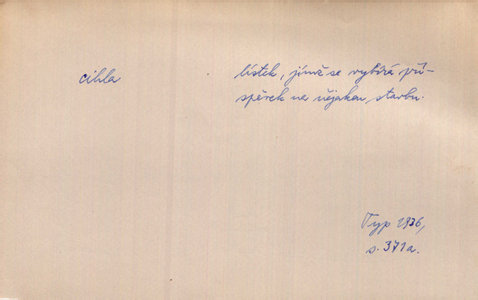 cihla
lístek, jímž se vybírá pří-
spěvek na nějakou stavbu.
Typ 1936,
s. 371a.